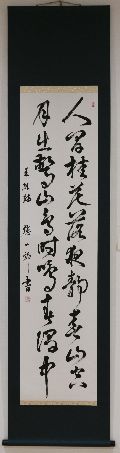 人閒桂花落夜靜春山空
月出驚山鳥時鳴春澗中
王維詩
書